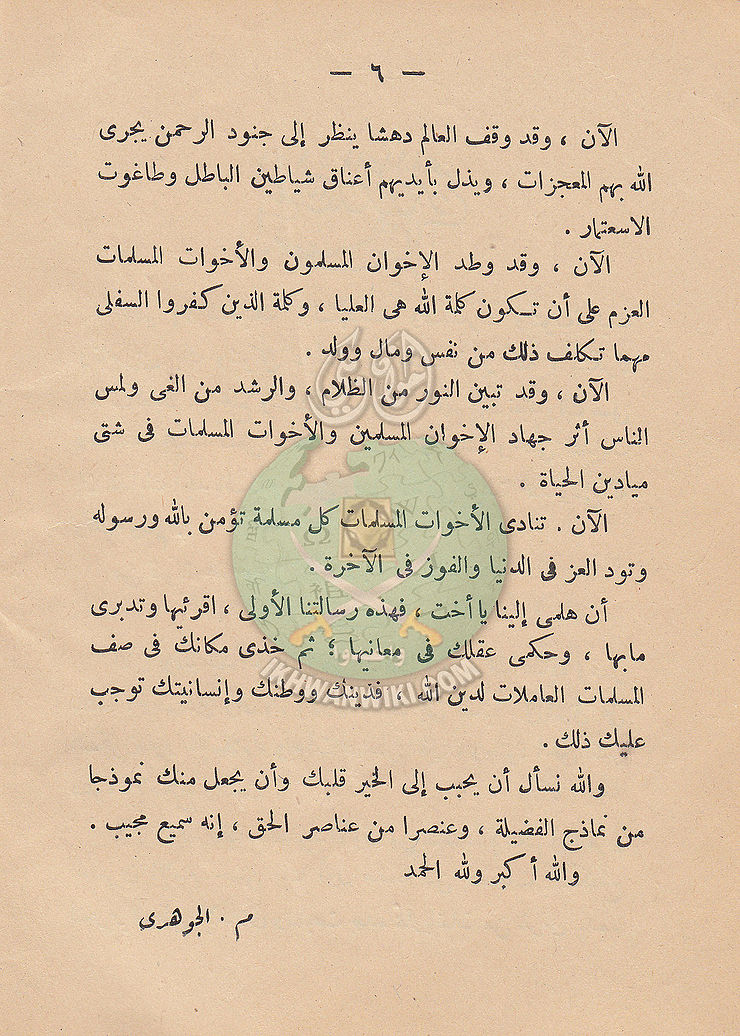 — ٦ —
الآن ، وقد وقف العالم دهشا ينظر إلى جنود الرحمن يجرى
الله بهم المعجزات ، ويذل بأيديهم أعناق شياطين الباطل وطاغوت
الاستعمار .
الآن ، وقد وطد الإخوان المسلمون والأخوات المسلمات
العزم على أن تكون كلمة الله هى العليا ، وكلمة الذين كفروا السفلى
مهما تكلف ذلك من نفس ومال وولد .
الآن ، وقد تبين النور من الظلام ، والرشد من الغى ولمس
الناس أثر جهاد الإخوان المسلمين والأخوات المسلمات فى شتى
ميادين الحياة .
الآن . تنادى الأخوات المسلمات كل مسلمة تؤمن بالله ورسوله
وتود العز فى الدنيا والفوز فى الآخرة .
أن هلمى إلينا يا أخت ، فهذه رسالتنا الأولى ، اقرئيها وتدبرى
مابها ، وحكمى عقلك فى معانيها ؛ ثم خذى مكانك فى صف
المسلمات العاملات لدين الله ، فدينك ووطنك وإنسانيتك توجب
عليك ذلك .
والله نسأل أن يحبب إلى الخير قلبك وأن يجعل منك نموذجا
من نماذج الفضيلة ، وعنصرا من عناصر الحق ، إنه سميع مجيب .
والله أكبر ولله الحمد
م . الجوهرى
IKHWANWIKI.COM